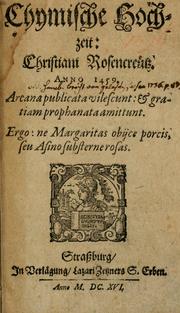 Chymische Hoch-
zeit:
Christiani Rosencreütz.
ANNO 1459.
Arcana publicata vilescunt: & gra-
tiam prophanata amittunt.
Ergo: ne Margaritas obijce porcis,
seu Asino substerne rosas.
Straßburg/
In Verlägung / Lazari Zetzners S. Erben.
Anno M. DC. XVI.